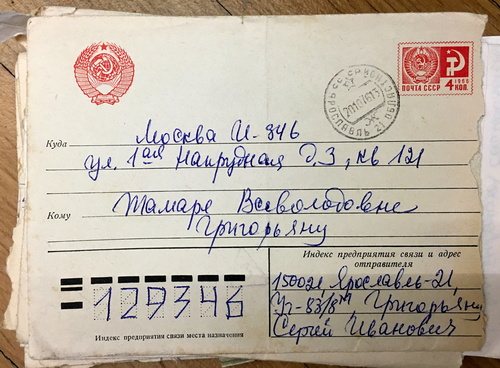 1966
ПОЧТА СССР 4 КОП.
ЯРОСЛАВЛЬ 21
Куда Москва И-346
ул. 1ая Напрудная д. 3, кв 121
Кому Тамаре Всеволодовне
Григорьяну
Индекс предприятия связи и адрес
отправителя
150021 Ярославль-21,
Григорьяну
Сергей Иванович
129346
Индекс предприятия связи места назначения